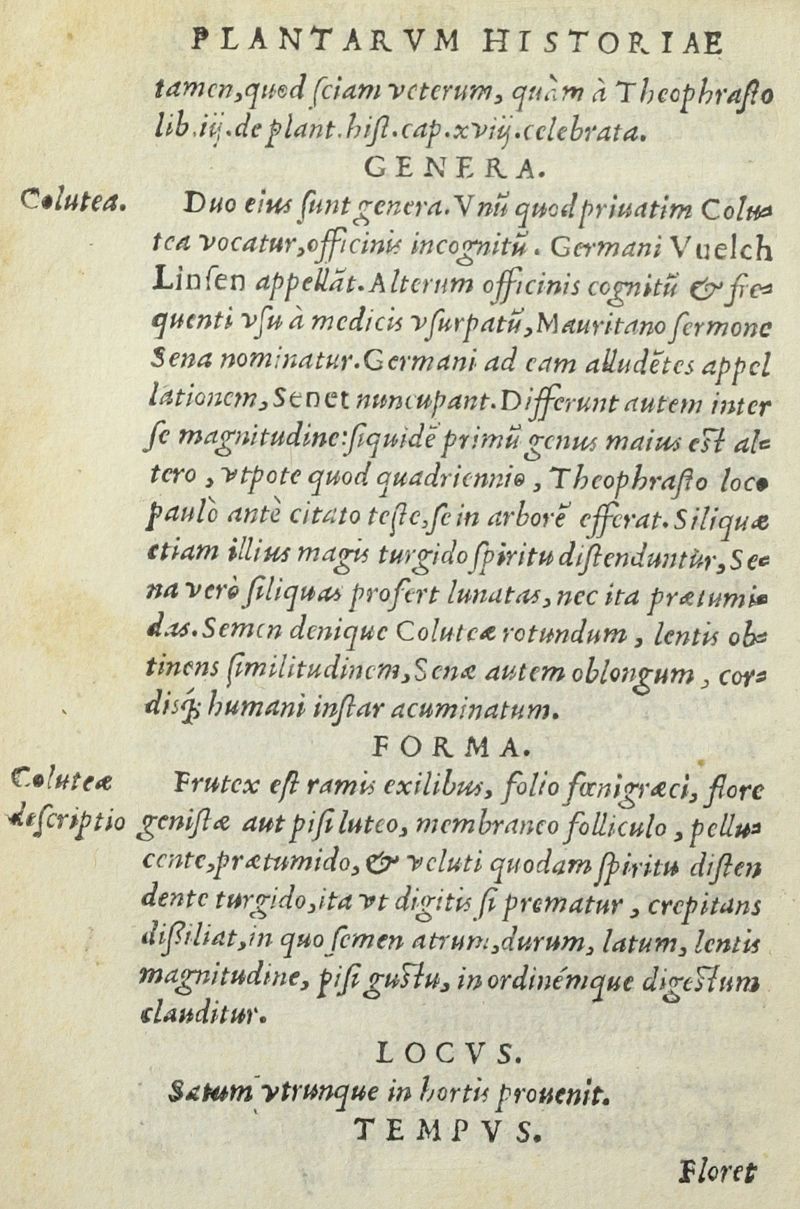 PLANTARVM HISTORIAE
tamen, quod sciam veterum, quàm à Theophrasto
lib. iij. de plant. hist. cap. xviij. celebrata.
GENERA.
Colutea.
Duo eius sunt genera. Vnũ quod priuatim Colu-
tea vocatur, officinis incognitũ. Germani Vuelch
Linsen appellãt. Alterum officinis cognitũ & fre-
quenti vsu à medicis vsurpatũ, Mauritano sermone
Sena nominatur. Germani ad eam alludẽtes appel
lationem, Senet nuncupant. Differunt autem inter
se magnitudine: siquidẽ primũ genus maius est al-
tero, vtpote quod quadriennio, Theophrasto loco
paulò antè citato teste, se in arborẽ efferat. Siliquæ
etiam illius magis turgido spiritu distenduntur, Se-
na verò siliquas profert lunatas, nec ita prætumi-
das. Semen denique Coluteæ rotundum, lentis ob-
tinens similitudinem, Senæ autem oblongum, cor-
disq́; humani instar acuminatum.
FORMA.
Coluteæ
descriptio
Frutex est ramis exilibus, folio fœnigræci, flore
genistæ aut pisi luteo, membraneo folliculo, pellu-
cente, prætumido, & veluti quodam spiritu disten
dente turgido, ita vt digitis si prematur, crepitans
dissiliat, in quo semen atrum, durum, latum, lentis
magnitudine, pisi gustu, in ordinémque digestum
clauditur.
LOCVS.
Satum vtrunque in hortis prouenit.
TEMPVS.
Floret